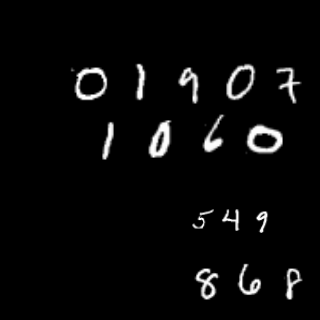 01907
1060
549
868